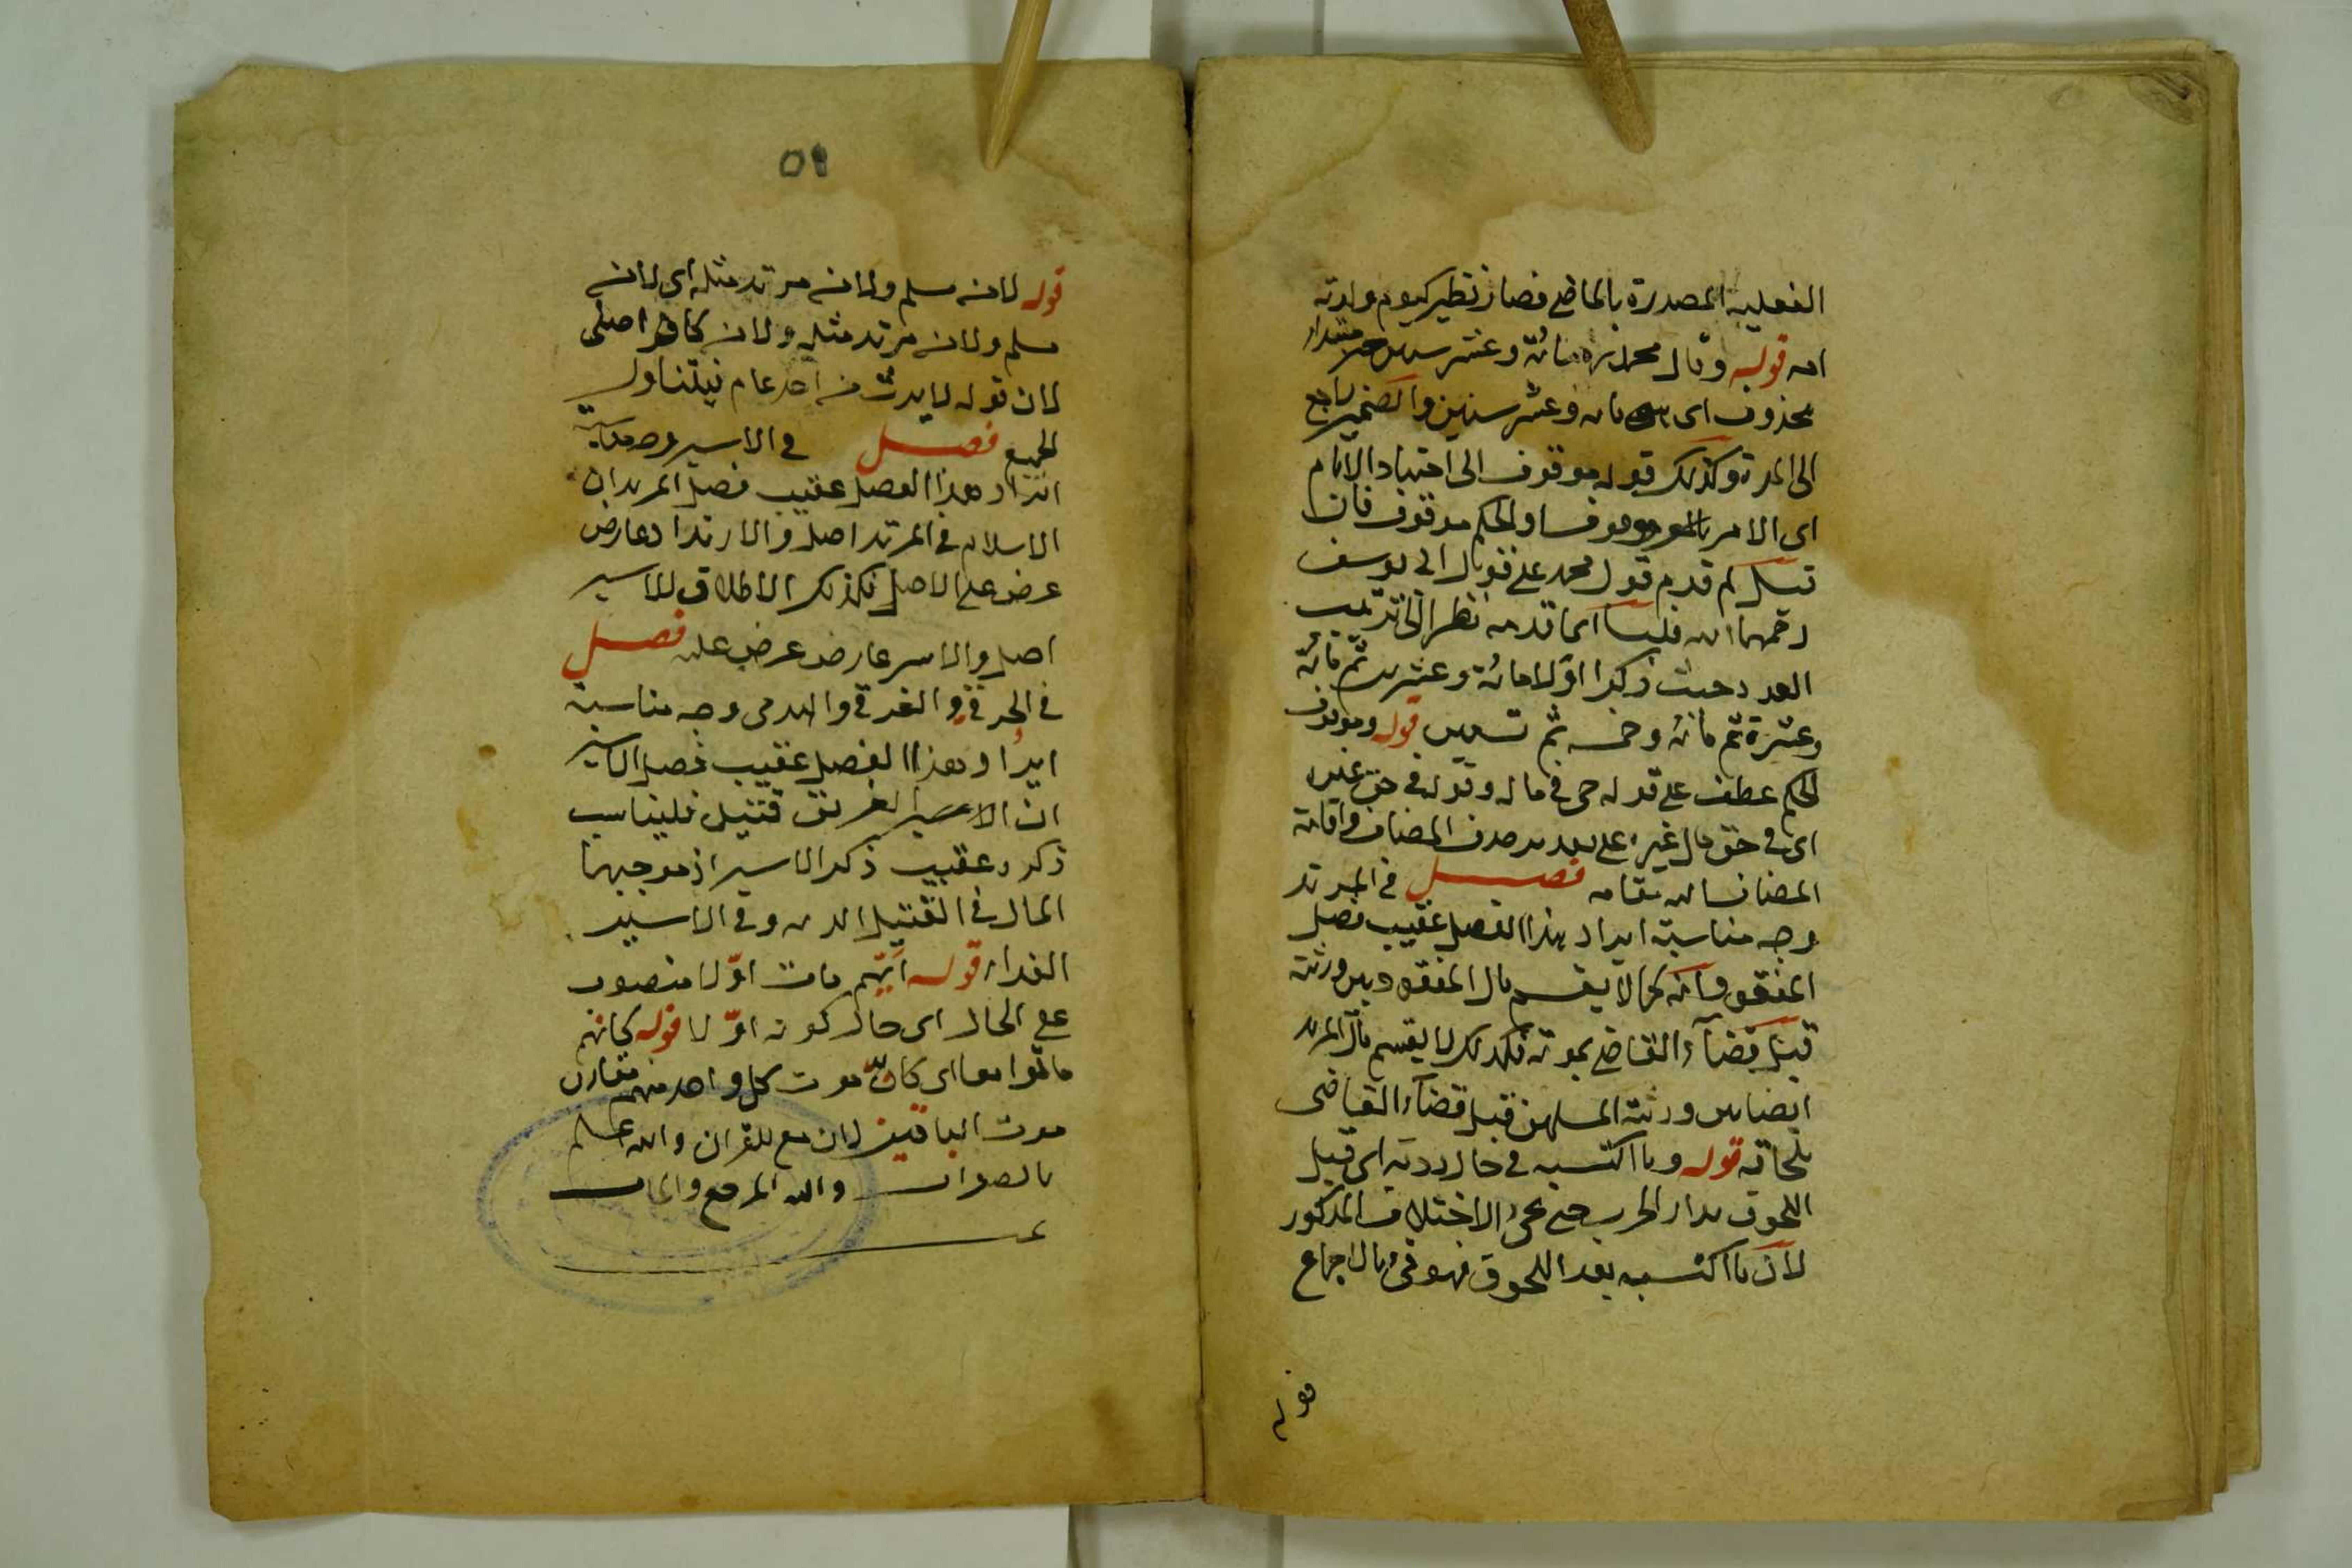 الفعلية المصدرة بالماضي فصار نظير كيوم ولدته
امه قوله وقال محمد رحمه مائة وعشر سنين خبر مبتداء
محذوف اى مائة وعشر سنين والضمير راجع
الى المدة وكذلك قوله موقوف الى اجتهاد الامام
اى الامر موقوف او الحكم موقوف فان
قيل لم قدم قول محمد على قول ابى يوسف
رحمهما الله قلنا انما قدمه نظرا الى ترتيب
العدد حيث ذكر اولا مائة وعشرين ثم مائة
وعشرة ثم مائة وخمسة ثم تسعين قوله وموقوف
الحكم عطف على قوله حى فى ماله وقوله فى حق غيره
اى فى حق مال غيره على حذف المضاف واقامة
المضاف اليه مقامه فصل فى المرتد
وجه مناسبة ايراد هذا الفصل عقيب فصل
المفقود انه كما لا يقسم مال المفقود بين ورثته
قبل قضاء القاضى بموته فكذلك لا يقسم مال المرتد
ايضا بين ورثته المسلمين قبل قضاء القاضى
بلحاقه قوله وما اكتسبه فى حال ردته اى قبل
اللحوق بدار الحرب حتى يجئ الاختلاف المذكور
لان ما اكتسبه بعد اللحوق فهو فئ بالاجماع
قوله
٥٩
قوله لا من مسلم ولا من مرتد مثله اى لا من
مسلم ولا من مرتد مثله ولا من كافر اصلى
لان قوله لا يرث من احد عام فيتناول
الجميع فصل فى الاسير وجه مناسبة
ايراد هذا الفصل عقيب فصل المرتد ان
الاسلام فى المرتد اصل والارتداد عارض
عرض على الاصل فكذلك الاطلاق للاسير
اصل والاسر عارض عرض عليه فصل
فى الحرقى والغرقى والهدمى وجه مناسبة
ايراد هذا الفصل عقيب فصل الاسير
ان الغريق قتيل فليناسب
ذكره عقيب ذكر الاسير اذ موجبهما
المال فى القتيل الدية وفى الاسير
الفداء قوله ايهم مات اولا منصوب
على الحال اى حال كونه اولا قوله كانهم
ماتوا معا اى كان موت كل واحد منهم مقارن
موت الباقين لان مع للقران والله اعلم
بالصواب واليه المرجع والماب